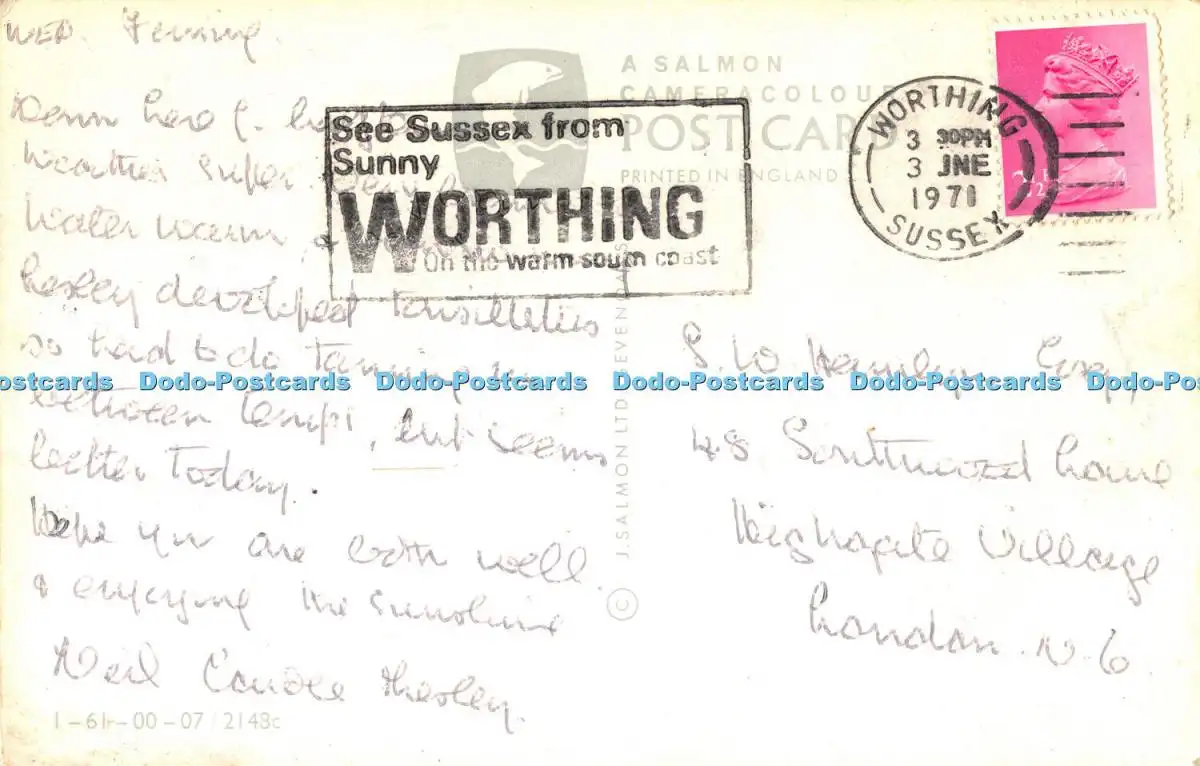 WED.
A SALMON
CAMERACOLOUR
POST CARD
PRINTED IN ENGLAND
See Sussex from
Sunny
WORTHING
On the warm south coast
WORTHING
3 30PM
3 JNE
1971
SUSSEX
2½
Down here
Weather super.
Water warm &
Lesley developed tonsilletis
so had to do
between temps, but seems
better Today.
Hope you are both well
& enjoying the sunshine
Neil Carole & Lesley.
1-61-00-07/2148c
© J. SALMON LTD SEVENOAKS
S. W. Hamlyn Esq,
48 Southwood Lane
Highgate Village
London. N. 6
Dodo-Postcards Dodo-Postcards Dodo-Postcards Dodo-Postcards Dodo-Postcards